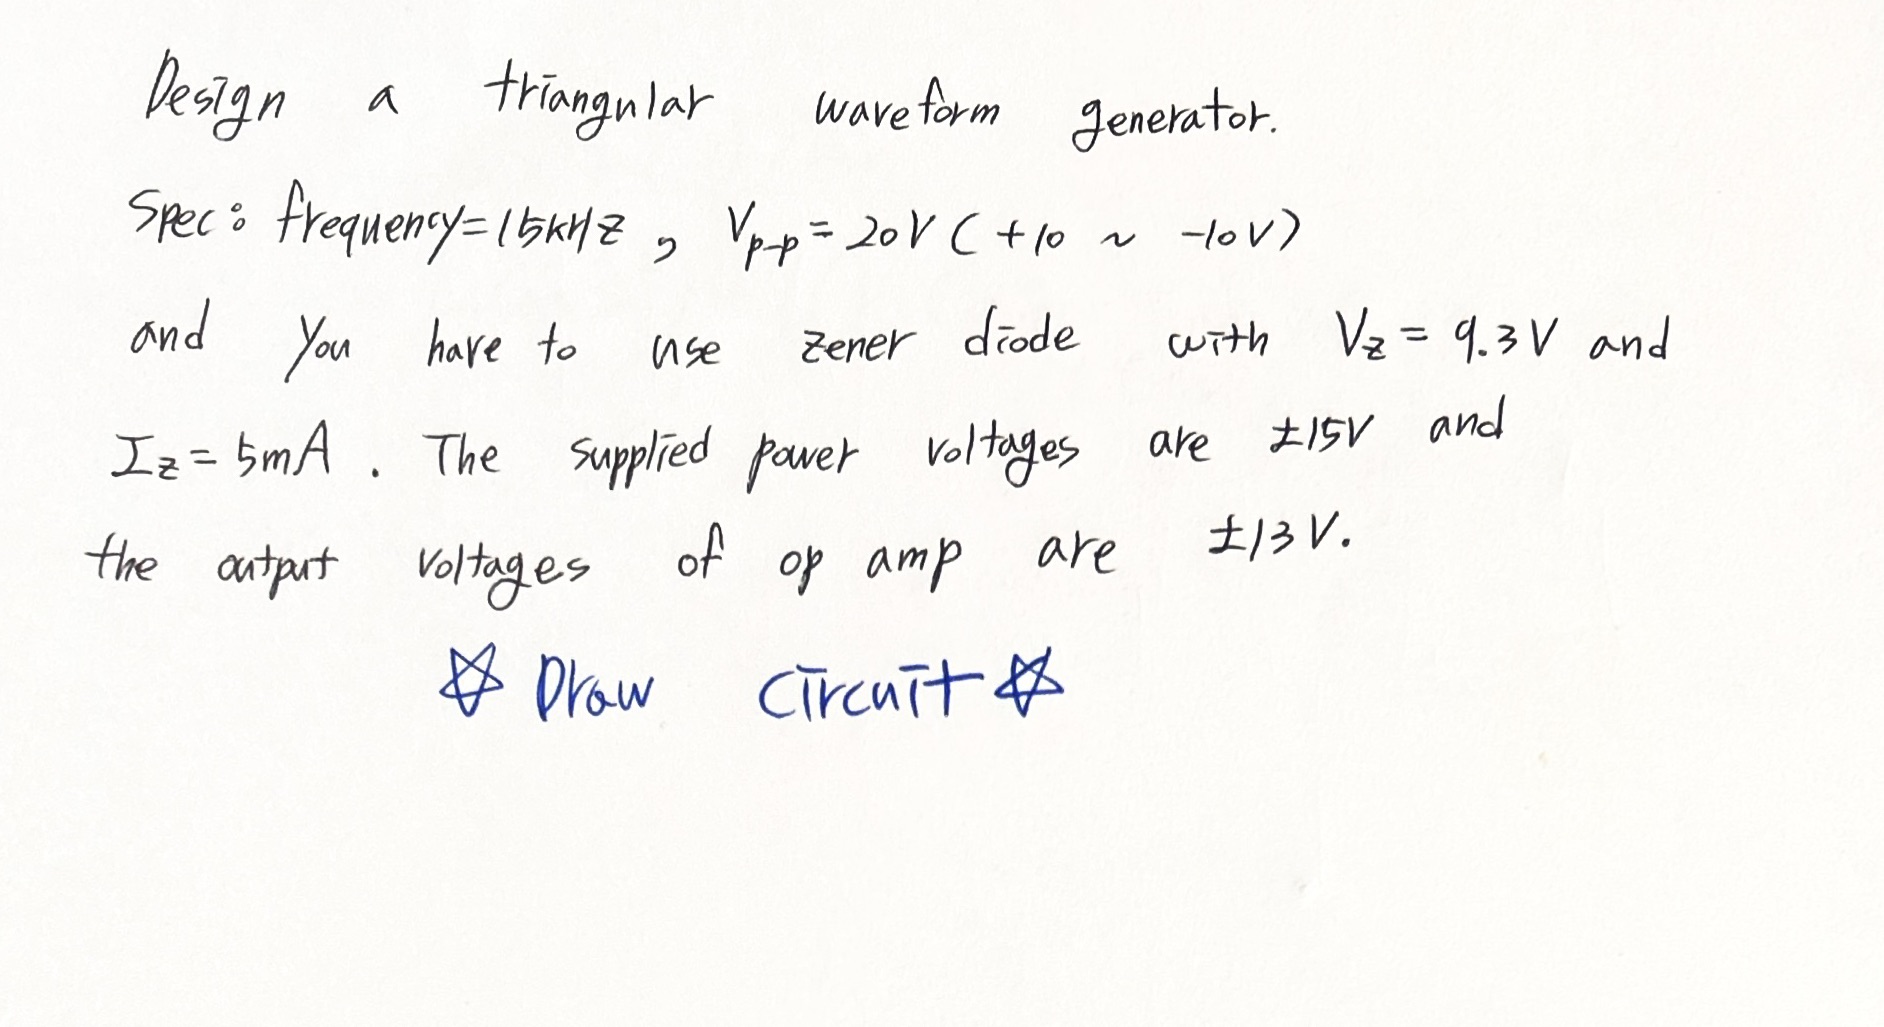 Design a triangular waveform generator.
Spec: frequency=15kHz, Vp-p = 20V (+10 ~ -10V)
and you have to use zener diode with Vz = 9.3V and
Iz = 5mA. The supplied power voltages are ±15V and
the output voltages of op amp are ±13V.
☆ Draw circuit ☆